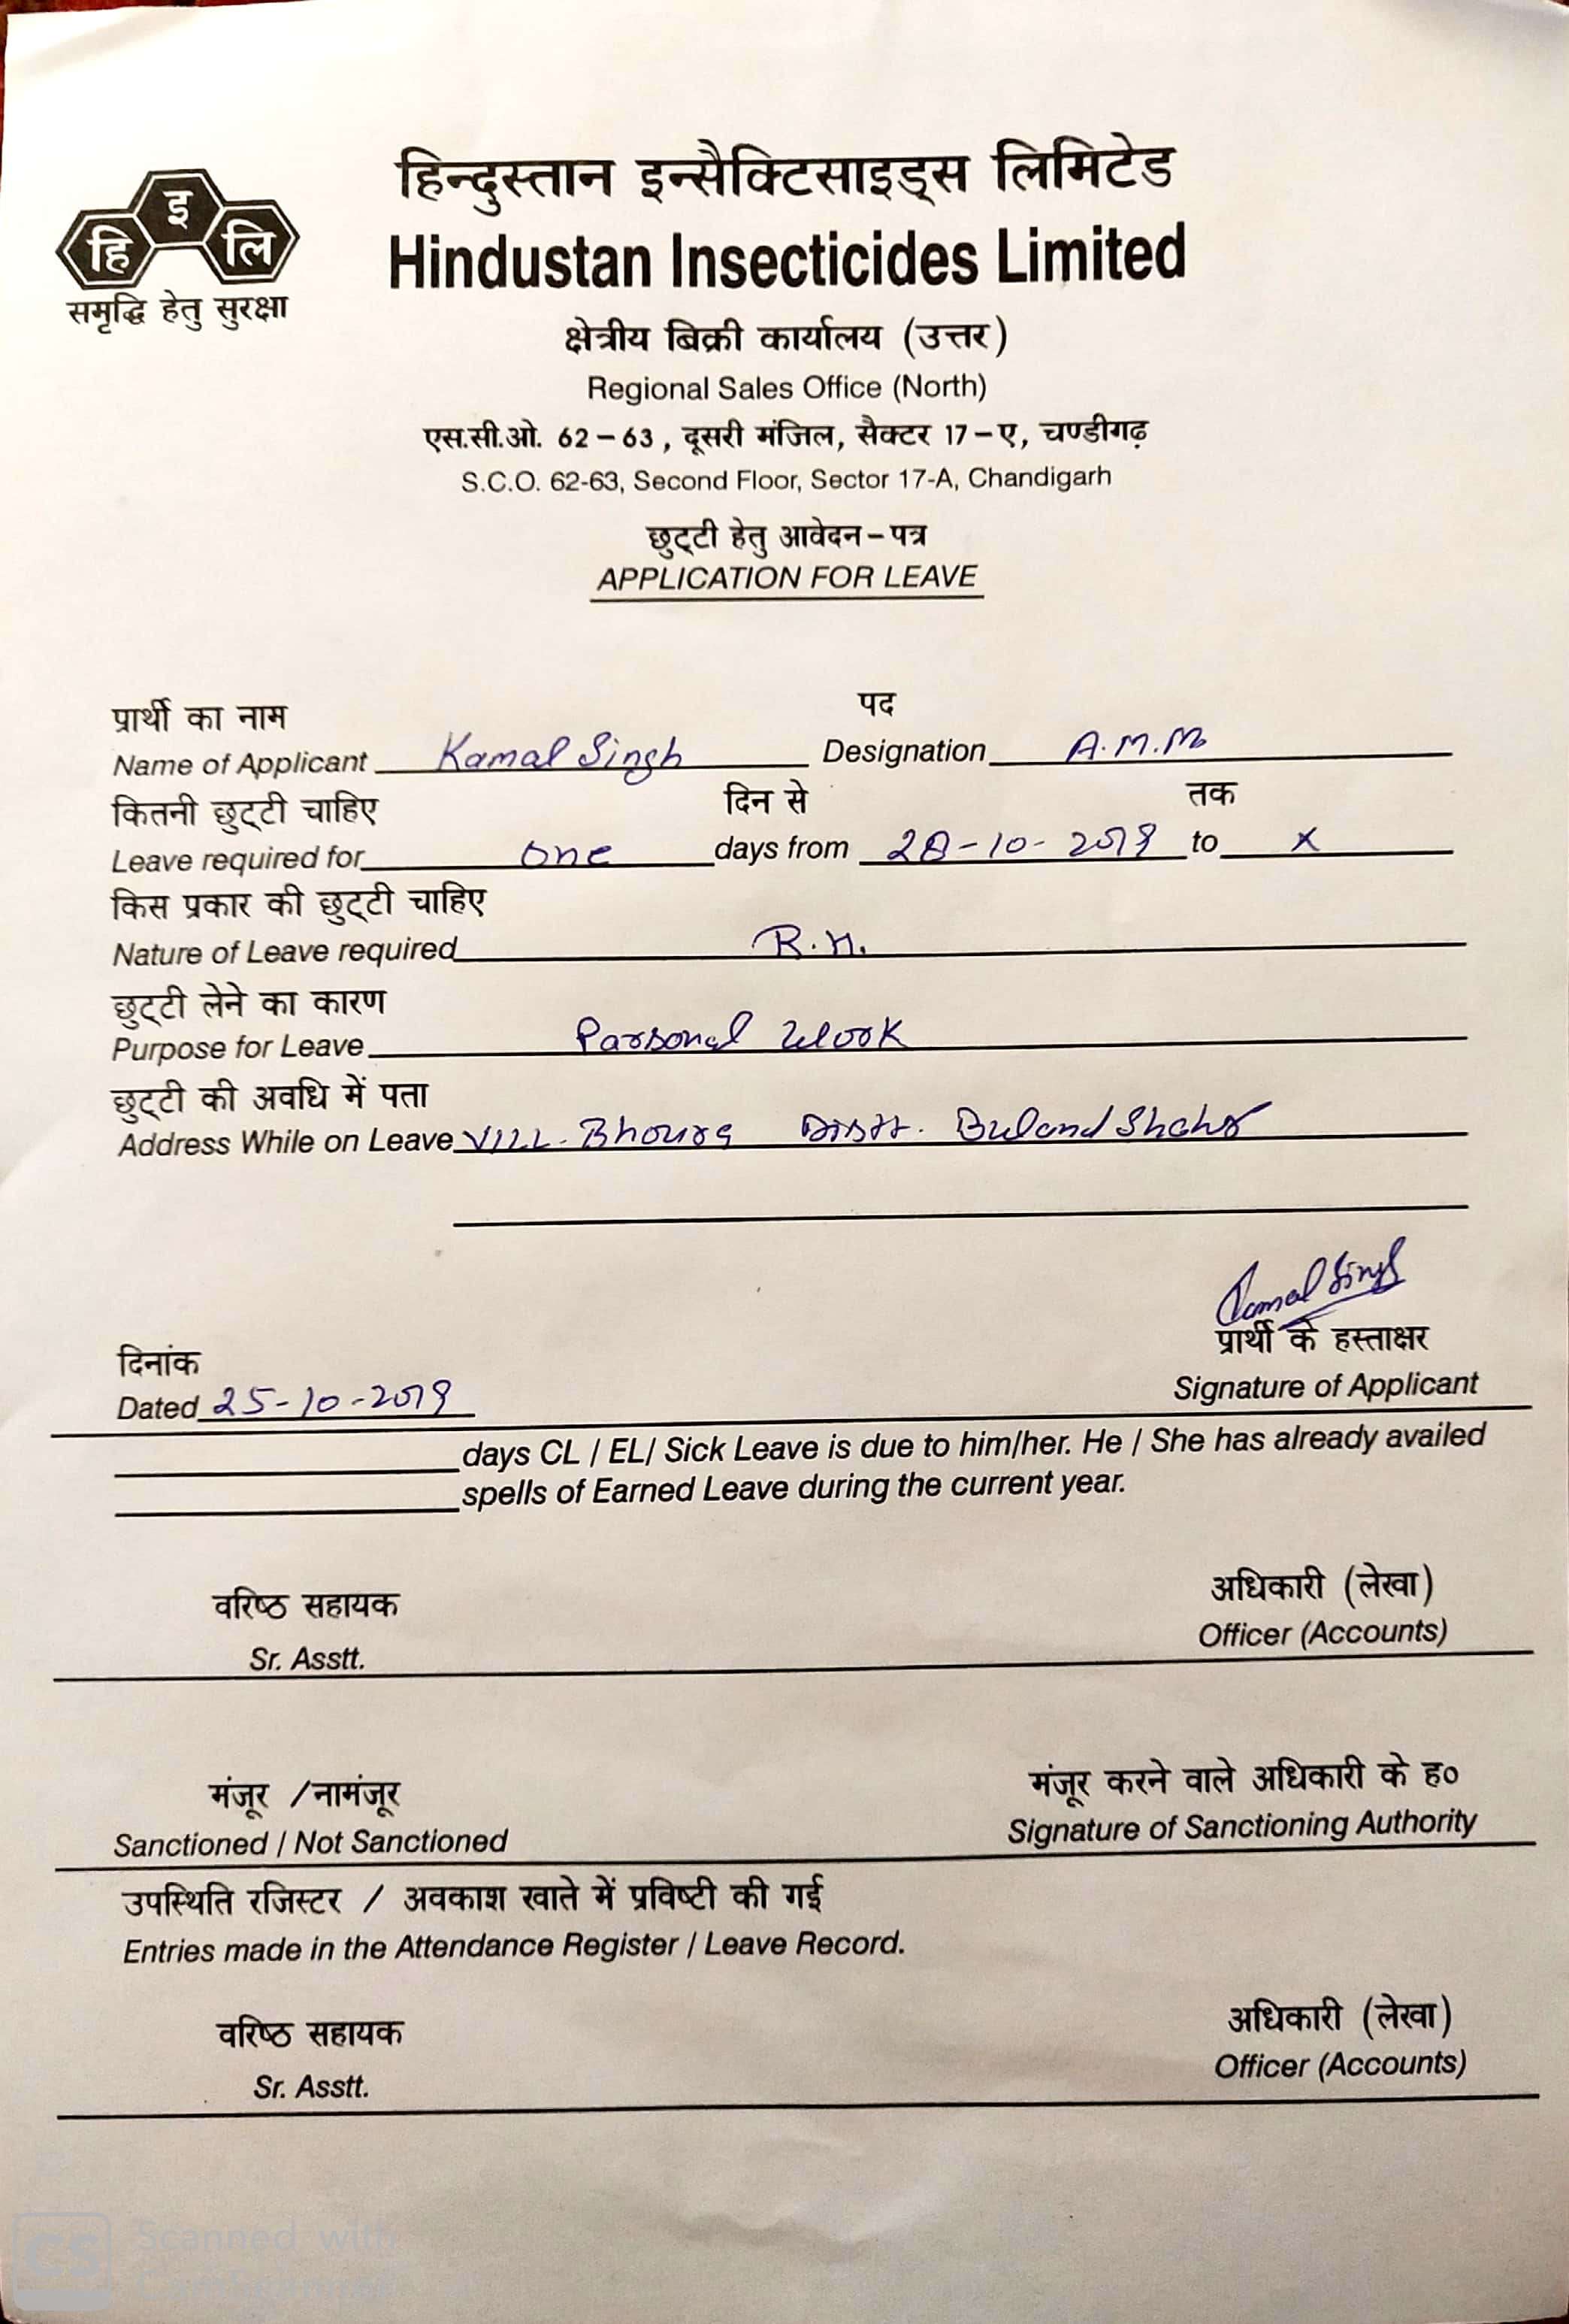 हिन्दुस्तान इन्सैक्टिसाइड्स लिमिटेड
हि इ लि
Hindustan Insecticides Limited
समृद्धि हेतु सुरक्षा
क्षेत्रीय बिक्री कार्यालय (उत्तर)
Regional Sales Office (North)
एस.सी.ओ. 62-63, दूसरी मंजिल, सैक्टर 17-ए, चण्डीगढ़
S.C.O. 62-63, Second Floor, Sector 17-A, Chandigarh
छुट्टी हेतु आवेदन-पत्र
APPLICATION FOR LEAVE
प्रार्थी का नाम पद
Name of Applicant Kamal Singh Designation A.M.M
कितनी छुट्टी चाहिए दिन से तक
Leave required for one days from 28-10-2019 to x
किस प्रकार की छुट्टी चाहिए
Nature of Leave required R.H.
छुट्टी लेने का कारण
Purpose for Leave Parsonal Work
छुट्टी की अवधि में पता
Address While on Leave VILL. Distt. Buland Shahr
Kamal Singh
प्रार्थी के हस्ताक्षर
दिनांक
Signature of Applicant
Dated 25-10-2019
days CL / EL/ Sick Leave is due to him/her. He / She has already availed
spells of Earned Leave during the current year.
वरिष्ठ सहायक अधिकारी (लेखा)
Sr. Asstt. Officer (Accounts)
मंजूर /नामंजूर मंजूर करने वाले अधिकारी के ह०
Sanctioned / Not Sanctioned Signature of Sanctioning Authority
उपस्थिति रजिस्टर / अवकाश खाते में प्रविष्टी की गई
Entries made in the Attendance Register / Leave Record.
वरिष्ठ सहायक अधिकारी (लेखा)
Sr. Asstt. Officer (Accounts)
CS Scanned with
CamScanner